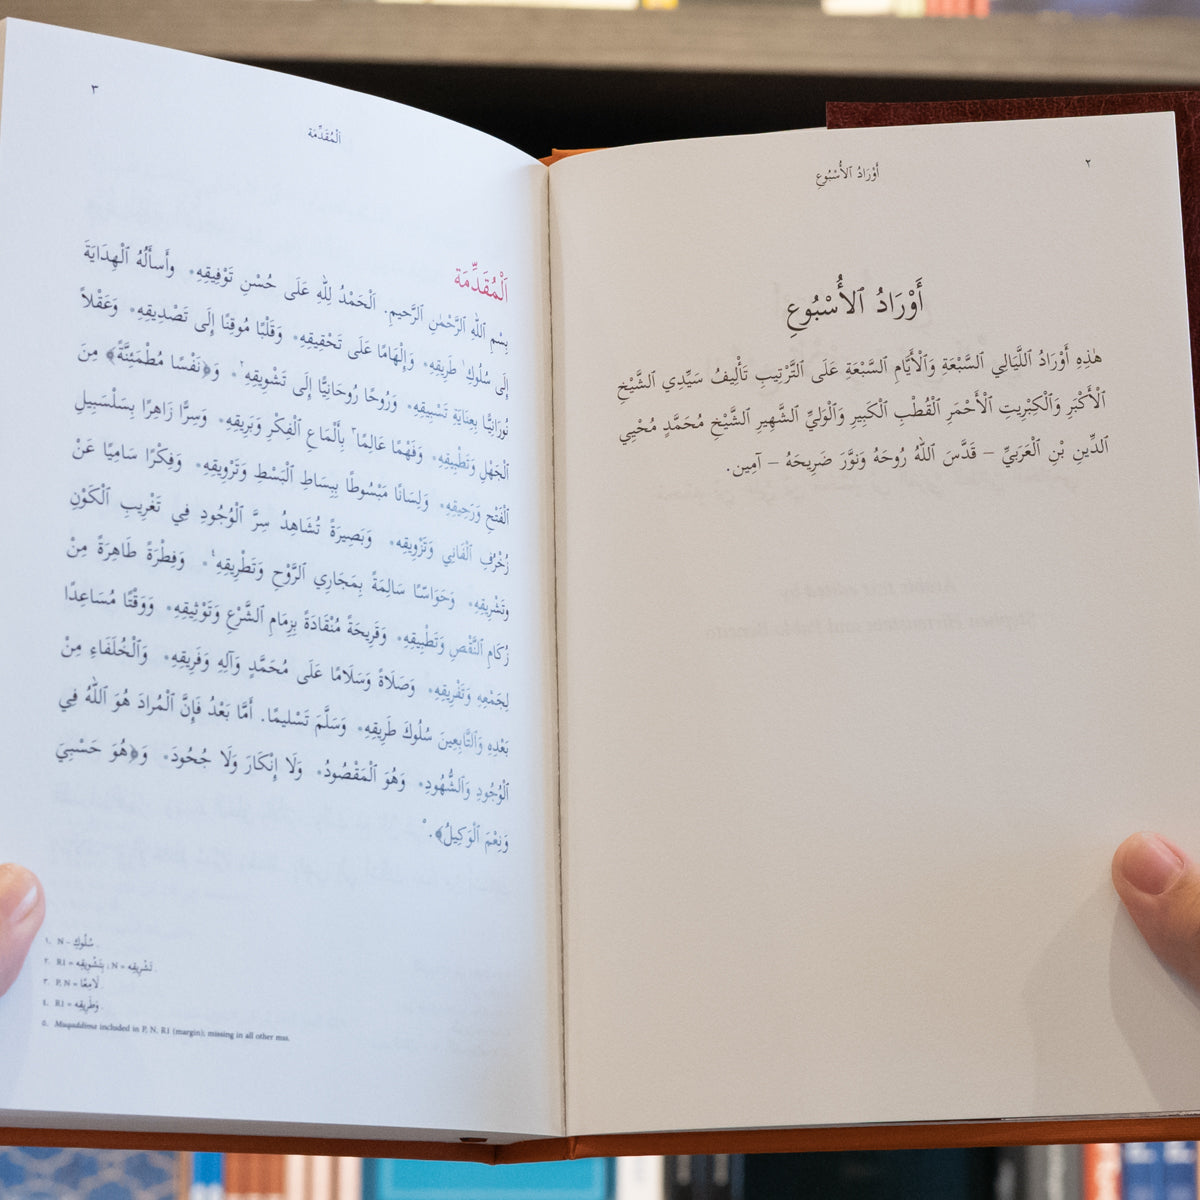 ٢
أَوْرَادُ ٱلأُسْبُوعِ
أَوْرَادُ ٱلأُسْبُوعِ
هٰذِهِ أَوْرَادُ اللَّيَالِي السَّبْعَةِ وَٱلْأَيَّامِ السَّبْعَةِ عَلَى التَّرْتِيبِ تَأْلِيفُ سَيِّدِي ٱلشَّيْخِ
ٱلْأَكْبَرِ وَٱلْكِبْرِيتِ ٱلْأَحْمَرِ ٱلْقُطْبِ ٱلْكَبِيرِ وَٱلْوَلِيِّ الشَّهِيرِ الشَّيْخِ مُحَمَّدٍ مُحْيِي
ٱلدِّينِ بْنِ ٱلْعَرَبِيِّ – قَدَّسَ ٱللّٰهُ رُوحَهُ وَنَوَّرَ ضَرِيحَهُ – آمِين.
٣
ٱلْمُقَدِّمَة
ٱلْمُقَدِّمَة
بِسْمِ ٱللّٰهِ ٱلرَّحْمٰنِ ٱلرَّحِيمِ. ٱلْحَمْدُ لِلّٰهِ عَلَى حُسْنِ تَوْفِيقِهِ۰ وَأَسأَلُهُ ٱلْهِدَايَةَ
إِلَى سُلُوكِ١ طَرِيقِهِ۰ وَإِلْهَامًا عَلَى تَحْقِيقِهِ۰ وَقَلْبًا مُوقِنًا إِلَى تَصْدِيقِهِ۰ وَعَقْلاً
نُورَانِيًّا بِعِنَايَةِ تَسْبِيقِهِ۰ وَرُوحًا رُوحَانِيًّا إِلَى تَشْوِيقِهِ٢۰ وَ﴿نَفْسًا مُطْمَئِنَّةً﴾ مِنَ
ٱلْجَهْلِ وَتَطْبِيقِهِ۰ وَفَهْمًا عَالِمًا٣ بِأَلْمَاعِ ٱلْفِكْرِ وَبَرِيقِهِ۰ وَسِرًّا زَاهِرًا بِسَلْسَبِيلِ
ٱلْفَتْحِ وَرَحِيقِهِ۰ وَلِسَانًا مَبْسُوطًا بِبِسَاطِ ٱلْبَسْطِ وَتَرْوِيقِهِ۰ وَفِكْرًا سَامِيًا عَنْ
زُخْرُفِ ٱلْفَانِي وَتَزْوِيقِهِ۰ وَبَصِيرَةً تُشَاهِدُ سِرَّ ٱلْوُجُودِ فِي تَغْرِيبِ ٱلْكَوْنِ
وَتَشْرِيقِهِ۰ وَحَوَاسًّا سَالِمَةً بِمَجَارِي ٱلرَّوْحِ وَتَطْرِيقِهِ٤۰ وَفِطْرَةً طَاهِرَةً مِنْ
زُكَامِ ٱلنَّقْصِ وَتَطْبِيقِهِ۰ وَقَرِيحَةً مُنْقَادَةً بِزِمَامِ ٱلشَّرْعِ وَتَوْثِيقِهِ۰ وَوَقْتًا مُسَاعِدًا
لِجَمْعِهِ وَتَفْرِيقِهِ۰ وَصَلَاةً وَسَلَامًا عَلَى مُحَمَّدٍ وَآلِهِ وَفَرِيقِهِ۰ وَٱلْخُلَفَاءِ مِنْ
بَعْدِهِ وَٱلتَّابِعِينَ سُلُوكَ طَرِيقِهِ۰ وَسَلَّمَ تَسْلِيمًا. أَمَّا بَعْدُ فَإِنَّ ٱلْمُرادَ هُوَ ٱللّٰهُ فِي
ٱلْوُجُودِ وَٱلشُّهُودِ۰ وَهُوَ ٱلْمَقْصُودُ۰ وَلَا إِنْكَارَ وَلَا جُحُودَ۰ وَ﴿هُوَ حَسْبِيَ
وَنِعْمَ ٱلْوَكِيلُ﴾.٥
١. N – سُلُوكِ.
٢. R1 = بِتَشْوِيقِهِ ; N = تَشْرِيقِهِ.
٣. P, N = لَامِعًا.
٤. R1 = وَطَرِيقِهِ.
٥. Muqaddima included in P, N, R1 (margin); missing in all other mss.